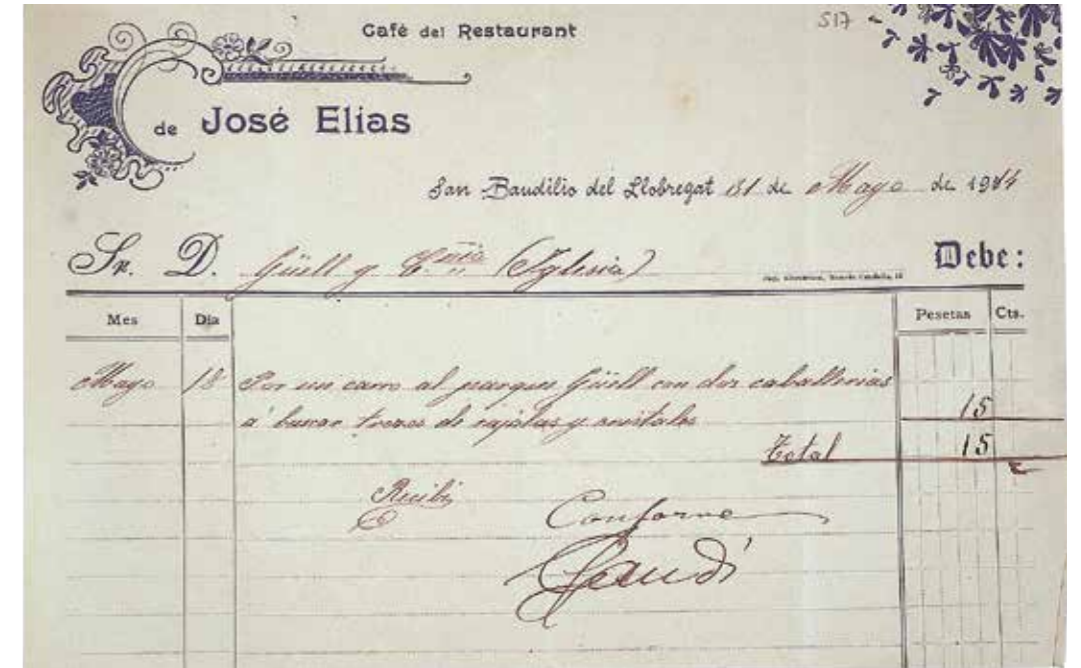 Café del Restaurant
517 -
de José Elias
San Baudilio del Llobregat 31 de Mayo de 1914
Sr. D. Güell y C.nia (Iglesia)
Debe:
Mes Dia Pesetas Cts.
Mayo 18 Por un carro al parque Güell con dos caballerias
a buscar trozos de rajolas y cristales 15
Total 15
Recibi
Conforme
Gaudí